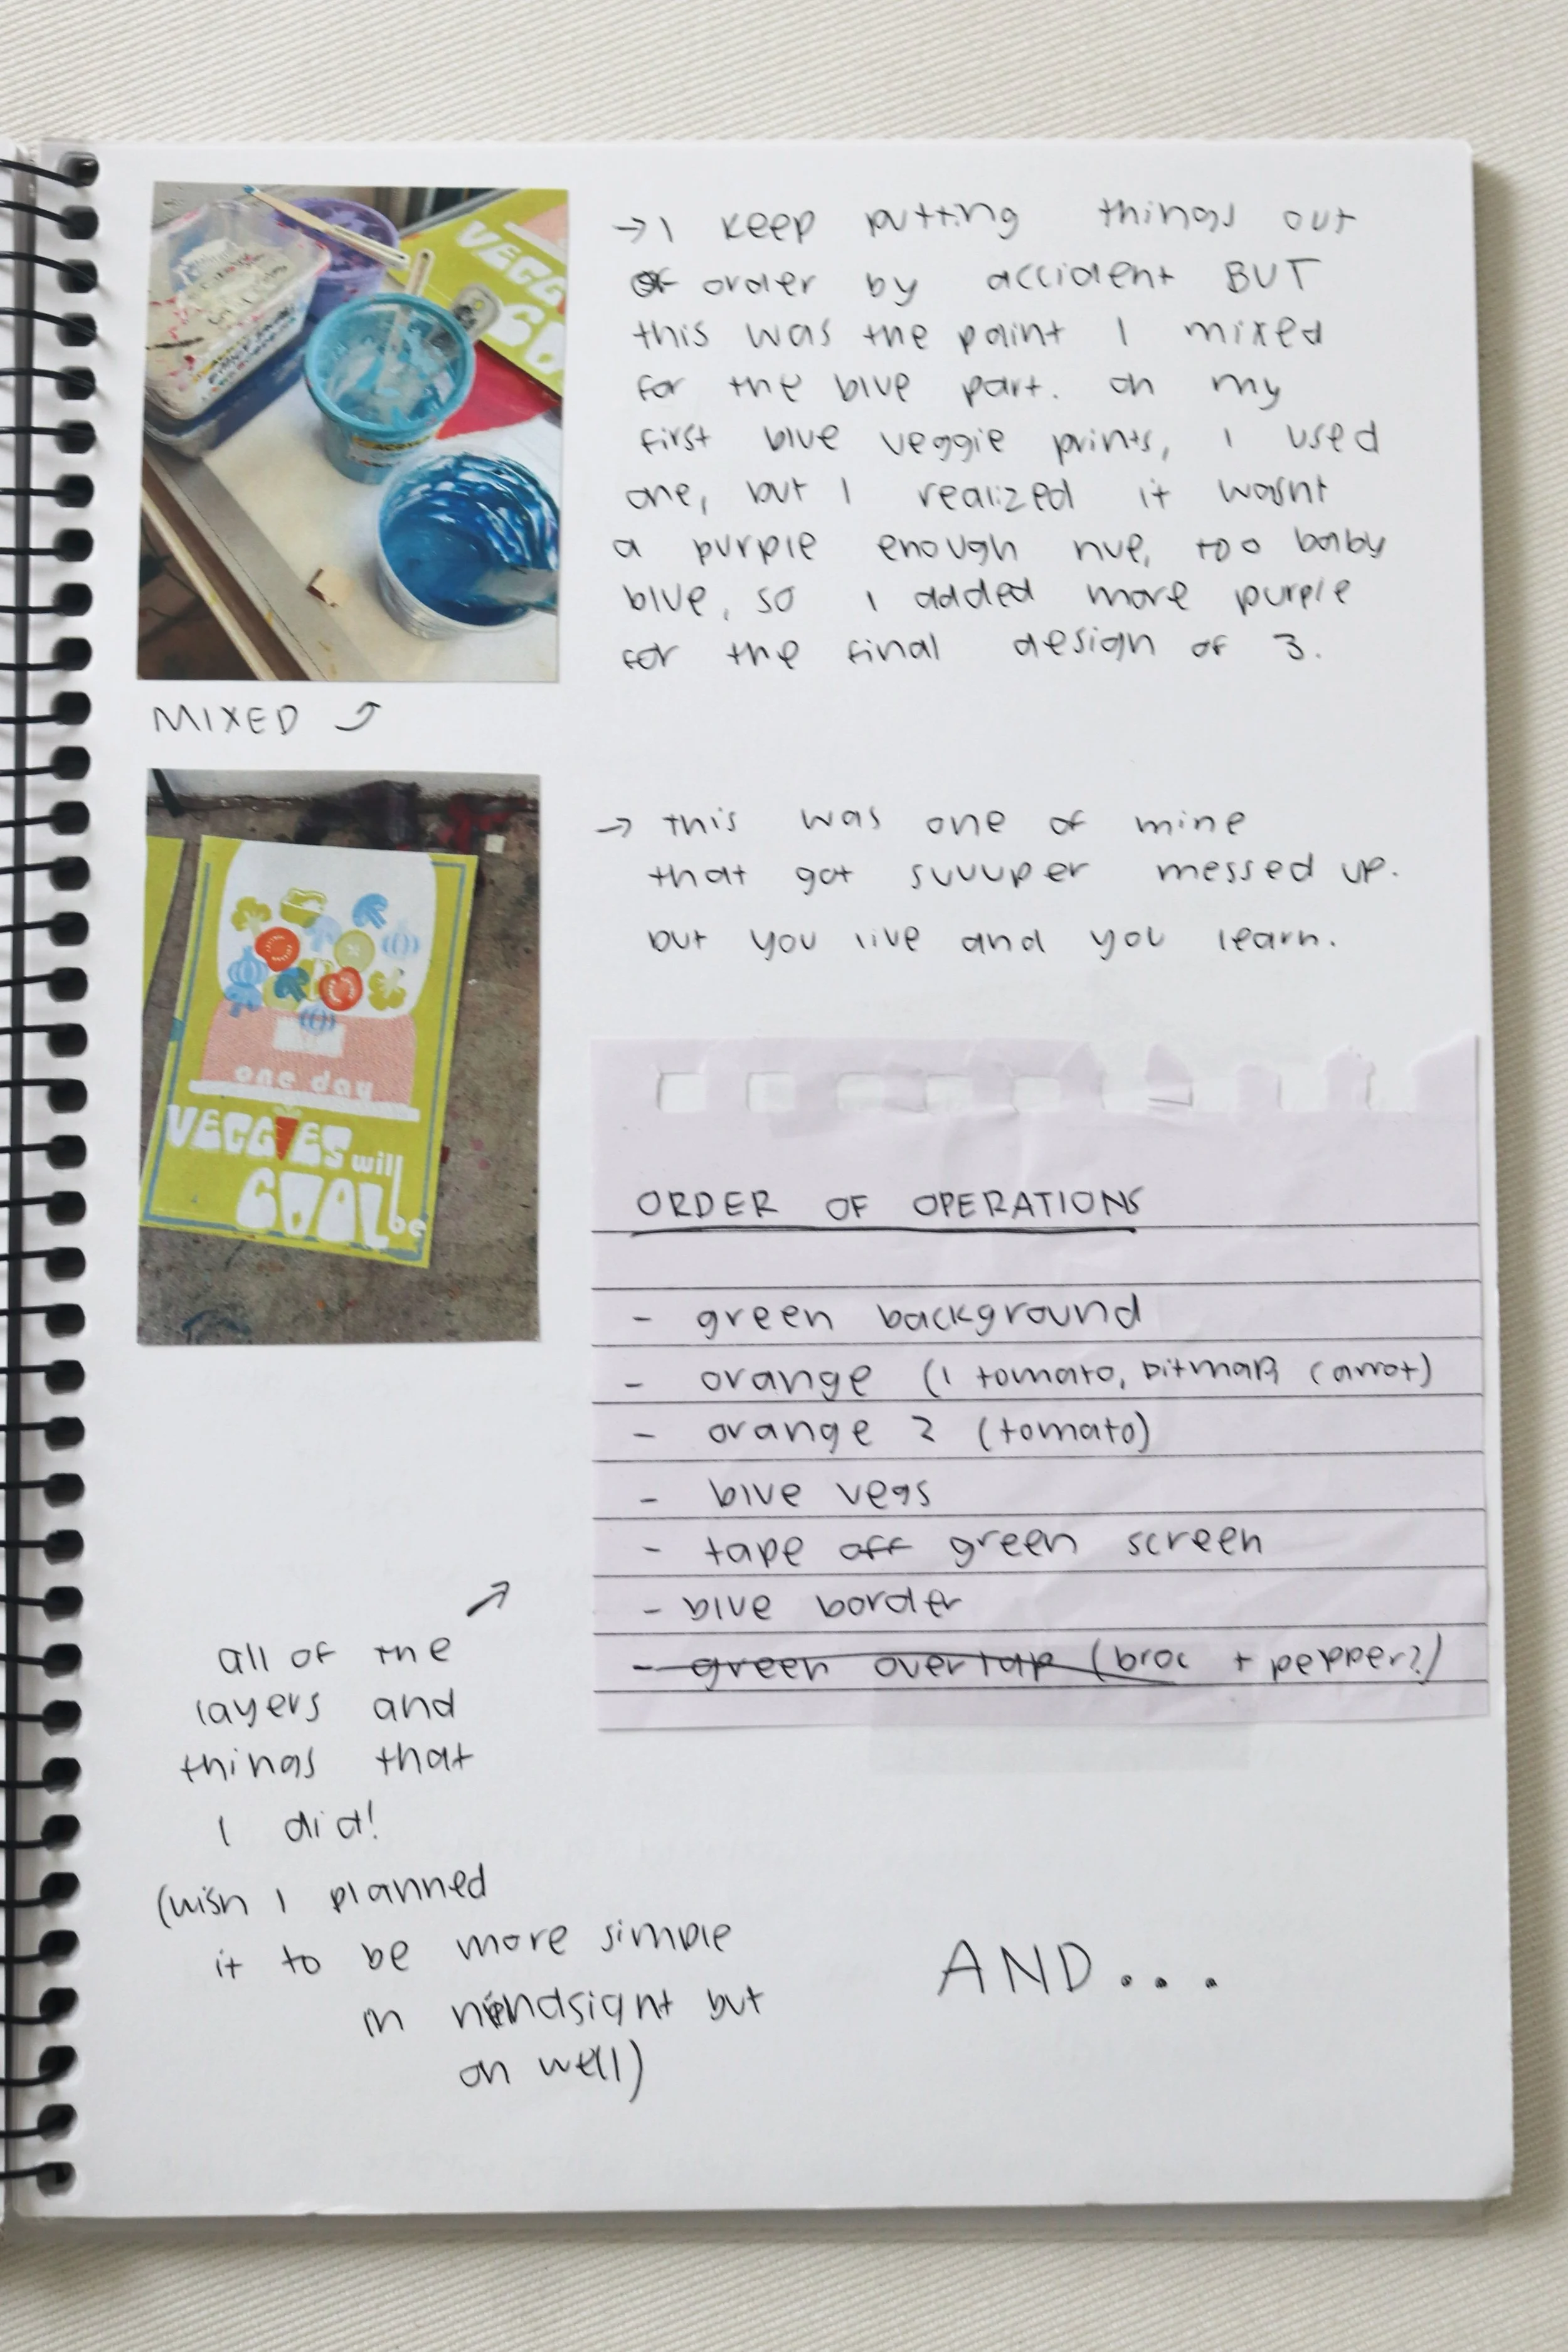 → I keep putting things out
of order by accident BUT
this was the paint I mixed
for the blue part. on my
first blue veggie prints, I used
one, but I realized it wasnt
a purple enough hue, too baby
blue, so I added more purple
for the final design of 3.
MIXED ⤴
→ this was one of mine
that got suuuper messed up.
but you live and you learn.
VEGG
CO
one day
VEGGIES will
COOL be
ORDER OF OPERATIONS
- green background
- orange (1 tomato, bitmap, carrot)
- orange 2 (tomato)
- blue vegs
- tape off green screen
- blue border
- green overlap (broc + pepper?)
↗
all of the
layers and
things that
I did!
(wish I planned
it to be more simple
in hindsight but
oh well)
AND...